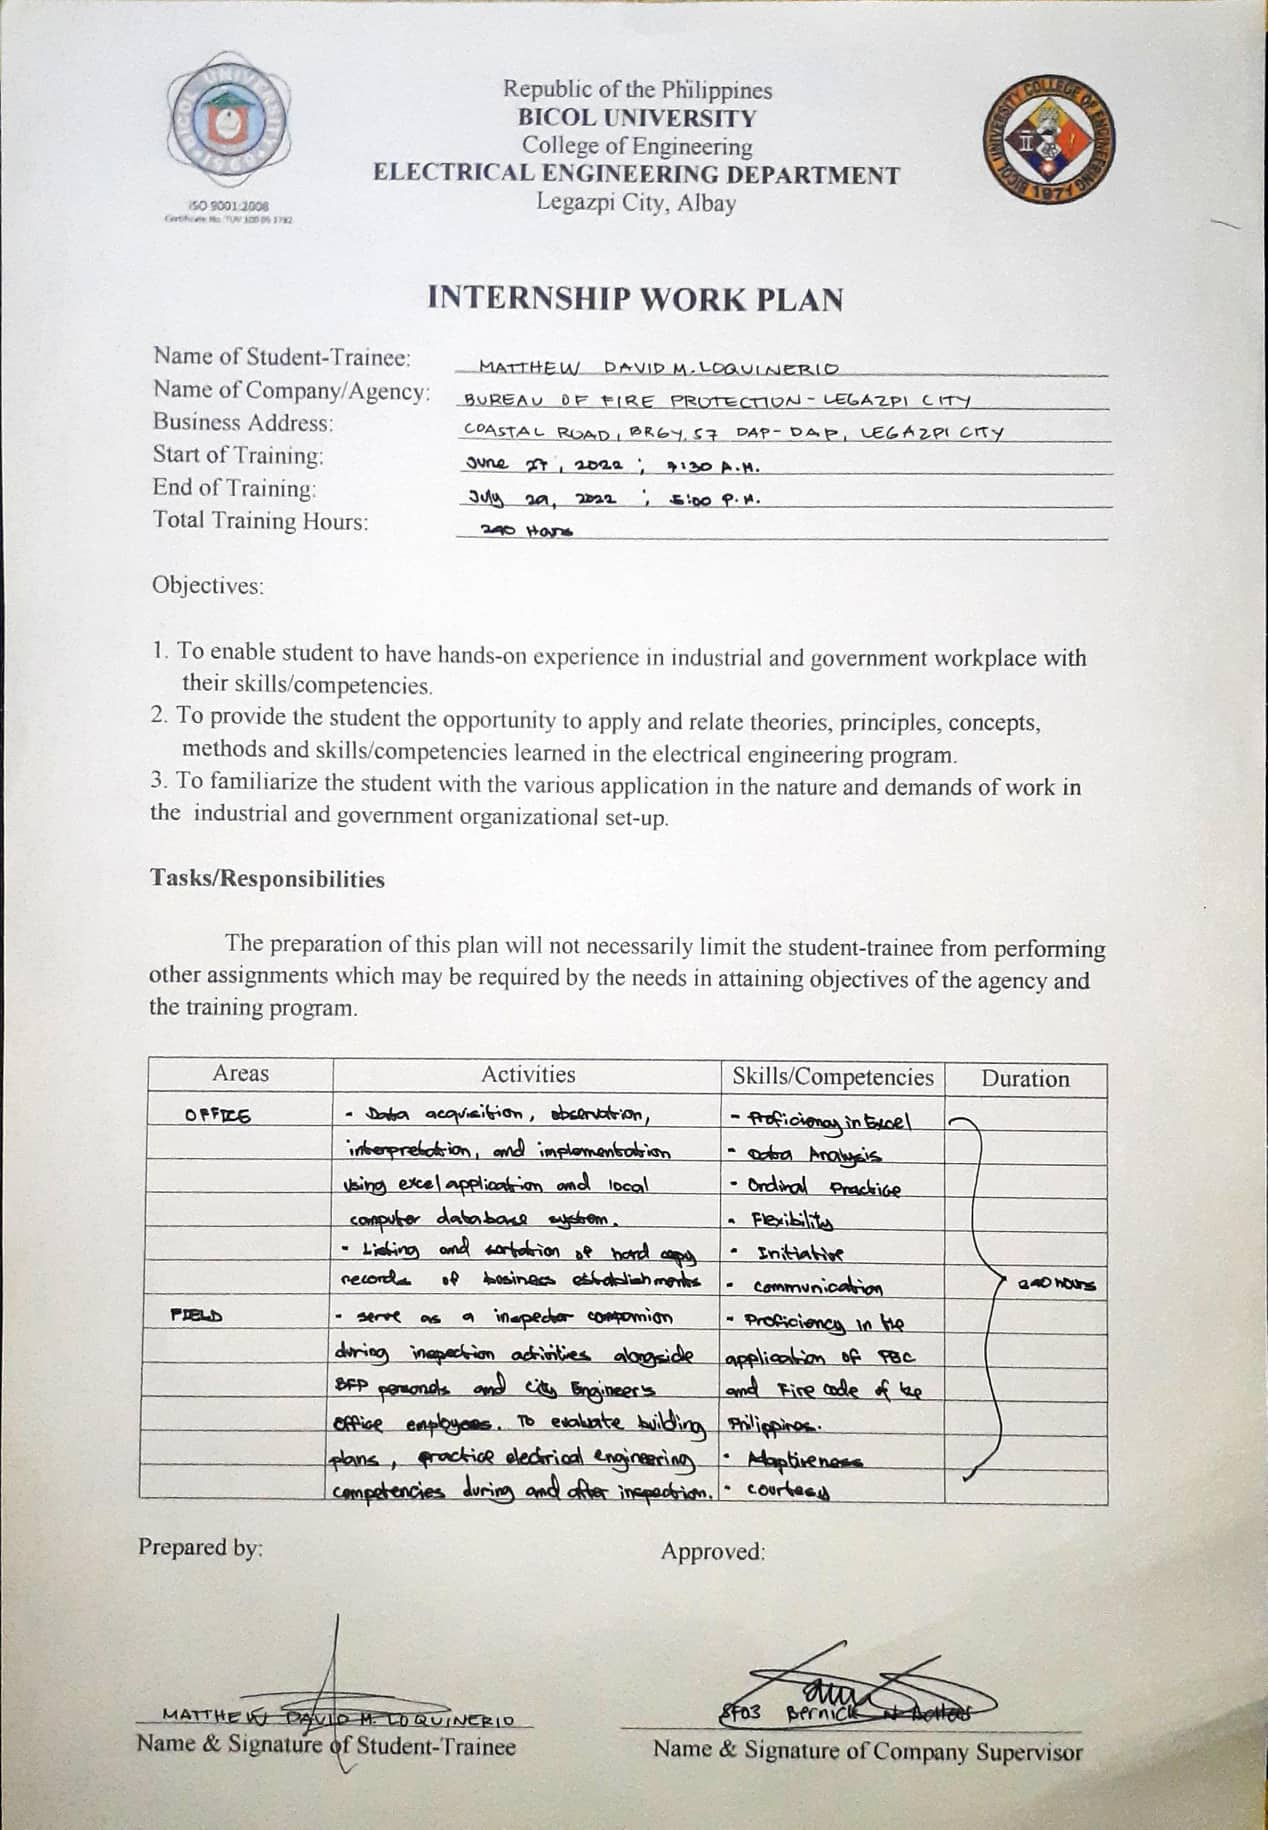 Republic of the Philippines
BICOL UNIVERSITY
College of Engineering
ELECTRICAL ENGINEERING DEPARTMENT
Legazpi City, Albay
BICOL UNIVERSITY
ISO 9001:2008
Certificate No. TUV 100 05 1782
BICOL UNIVERSITY COLLEGE OF ENGINEERING
1971
INTERNSHIP WORK PLAN
Name of Student-Trainee: MATTHEW DAVID M. LOQUINERIO
Name of Company/Agency: BUREAU OF FIRE PROTECTION - LEGAZPI CITY
Business Address: COASTAL ROAD, BRGY. 57 DAP-DAP, LEGAZPI CITY
Start of Training: June 27, 2022 ; :30 A.M.
End of Training: July 29, 2022 ; 5:00 P.M.
Total Training Hours: 240 Hours
Objectives:
1. To enable student to have hands-on experience in industrial and government workplace with
their skills/competencies.
2. To provide the student the opportunity to apply and relate theories, principles, concepts,
methods and skills/competencies learned in the electrical engineering program.
3. To familiarize the student with the various application in the nature and demands of work in
the industrial and government organizational set-up.
Tasks/Responsibilities
The preparation of this plan will not necessarily limit the student-trainee from performing
other assignments which may be required by the needs in attaining objectives of the agency and
the training program.
Areas Activities Skills/Competencies Duration
OFFICE - Data acquisition, observation, - Proficiency in Excel
interpretation, and implementation - Data Analysis
using excel application and local - Ordinal Practice
computer database system. - Flexibility
- Listing and sortation of hard copy - Initiative
records of business establishments - communication 240 hours
FIELD - serve as a inspector companion - Proficiency in the
during inspection activities alongside application of PEC
BFP personels and City Engineer's and Fire code of the
office employees. To evaluate building Philippines.
plans, practice electrical engineering - Adaptiveness
competencies during and after inspection. - courtesy
Prepared by: Approved:
MATTHEW DAVID M. LOQUINERIO SFO3 Bernick
Name & Signature of Student-Trainee Name & Signature of Company Supervisor